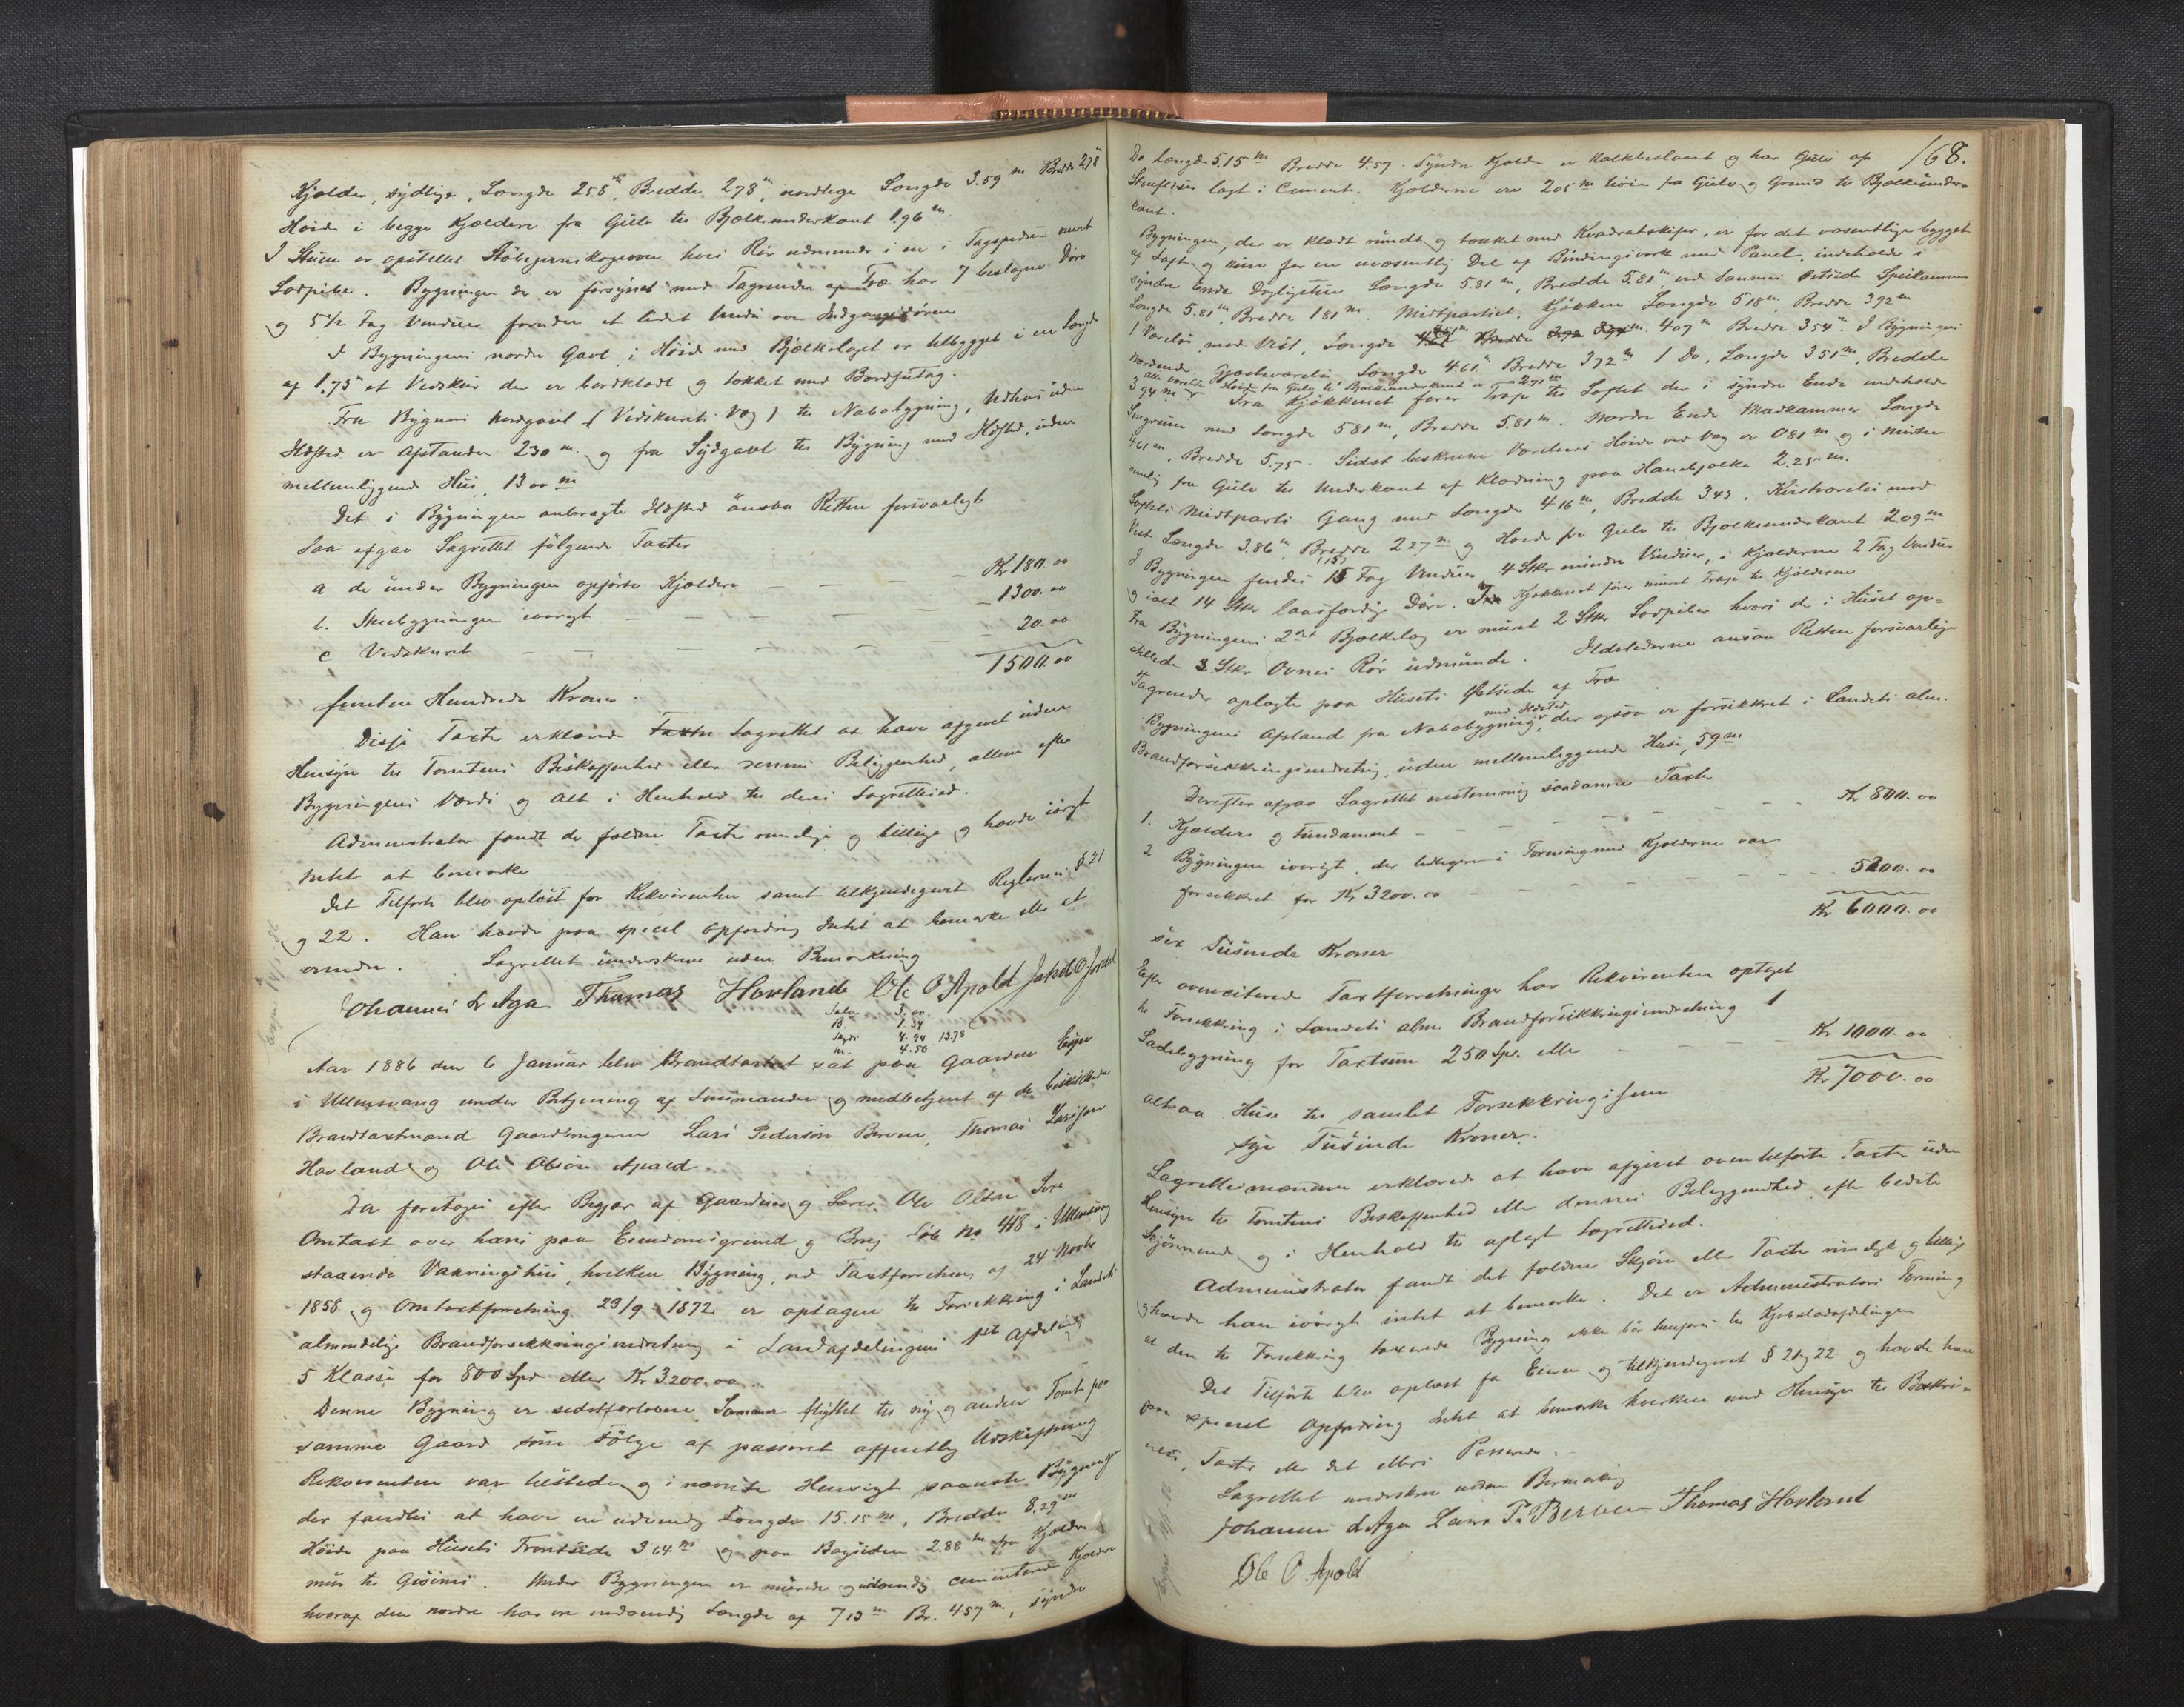 Kjælder, sydlige, Længde 258 m, Bredde 278 m, nordlige Længde 3.59 m Bredde 278
Høide i begge Kjældere fra Gulv til Bjælkeunderkant 1.96 m.
I Stuen er opstillet Støbejernskogeovn hvis Rør udmunder i en i Tagspidsen muret
Sodpibe. Bygningen der er forsynet med Tagrender af Træ har 7 beslagne Døre
og 5 1/2 Fag Vinduer foruden et lidet Vindu over Indgangsdøren
I Bygningens nordre Gavl, i Høide med Bjælkelaget er tilbygget i en Længde
af 1.75 m et Vedskur der er bordklædt og tækket med Bordsutag.
Fra Bygnens nordgavl (Vedskurets Væg) til Nabobygning, Udhus uden
Ildsted er Afstanden 230 m. og fra Sydgavl til Bygning med Ildsted, uden
mellemliggende Hus, 13 00 m
Det i Bygningen anbragte Ildsted ansaa Retten forsvarligt
Saa afgav Lagrettet følgende Taxter
a de under Bygningen opførte Kjældere — — — Kr 180.00
b. Stuebygningen iøvrigt — — — — 1300.00
c Vedskuret — — — — — 20.00
1500.00
femten Hundrede Kroner.
Disse Taxter erklærede Taxter Lagrettet at have afgivet uden
Hensyn til Tomtens Beskaffenhed eller dennes Beliggenhed, allene efter
Bygningens Værdi og Alt i Henhold til deres Lagrettesed.
Administrator fandt de faldne Taxter rimelige og billige og havde iørgt
Intet at bemærke
Det Tilførte blev oplæst for Rekvirenten samt tilkjendegivet Reglernes § 21
og 22. Han havde paa speciel Opfordring Intet at bemærke eller at
erindre. Lagrettet underskrev uden Bemærkning
Johannes L Aga Thomas Hovland Ole O Apold Jakob O Jordal
3.00
B. 1.34
4.94 13.78
4.50
Aar 1886 den 6 Januar blev Brandtaxt sat paa Gaarden Eije
i Ullensvang under Betjening af Lensmanden og medbetjent af de beskikkede
Brandtaxtmænd Gaardbrugerne Lars Pedersøn Berven, Thomas Larsson
Hovland og Ole Olsøn Apold.
Da foretoges efter Begjær af Gaardeier og Lærer Ole Olsøn
Omtaxt over hans paa Eiendomsgrund og Brug Løb No 448 i Ullensvang
staaende Vaaningshus, hvilken Bygning, ved Taxtforretning af 24 Novbr
1858 og Omtaxtforretning 29/9 1872 er optagen til Forsikkring i Landets
almindelige Brandforsikkringsindretning i Landafdelingens 1ste Afdelings
5 Klasse for 800 Spd eller Kr 3200.00.
Denne Bygning er sidstforløbne Sommer flyttet til ny og anden Tomt paa
samme Gaard som Følge af passeret offentlig Udskiftning
Rekvirenten var tilstede og i nævnte Hensigt paaviste Bygning
der fandtes at have en udvendig Længde 15.15 m, Bredde 8.29 m
Høide paa Husets Frontside 364 m og paa Bagsiden 2.88 m fra Kjælder
mur til Gesims. Under Bygningen er murede og udvendig cementerede Kjældere
hvoraf den nordre har en indvendig Længde af 713 m Br. 457 m, søndre
168.
Do Længde 5.15 m Bredde 4.57. Søndre Kjælder er kalkbeslaaet og har Gulv af
Stenfliser lagt i Cement. Kjælderne ere 205 m høie fra Gulv og Grund til Bjælkeunder-
kant.
Bygningen, der er klædt rundt og tækket med Kvadratskifer, er for det væsentlige bygget
af Laft og kun for en uvæsentlig Del af Bindingsverk med Panel, indeholder i
søndre Ende Dagligstue Længde 5.81 m, Bredde 5.81 m, ved Sammes Østside Speikammer
Længde 5.81 m, Bredde 181 m. Midtpartiet, Kjøkken Længde 518 m, Bredde 392 m
1 Værelse mod Vest, Længde 407 m Bredde 354 m. I Bygningens
Nordende Gjæsteværelse Længde 4.61 m Bredde 372 m 1 Do, Længde 351 m, Bredde
alle Værelsers Høide fra Gulv til Bjælkeunderkant er 2.71 m
394 m. Fra Kjøkkenet fører Trap til Loftet der i søndre Ende indeholder
med Længde 581 m, Bredde 5.81 m. Nordre Ende Madkammer Længde
461 m, Bredde 5.75. Sidst beskrevne Værelsers Høide ved Væg er 081 m og i Midten
nemlig fra Gulv til Underkant af Klædning paa Hanebjælke 2.25 m.
Loftets Midtparti Gang med Længde 416 m, Bredde 343. Kvistværelse mod
Vest Længde 3.86 m Bredde 227 m og Høide fra Gulv til Bjælkeunderkant 209 m
I Bygningen findes 15 (15) Fag Vinduer, 4 Stkr mindre Vinduer, i Kjælderne 2 Fag Vinduer
og ialt 14 Stkr laasfærdige Døre. Fra Kjøkkenet fører muret Trap til Kjælderne
Fra Bygningens 2det Bjælkelag er muret 2 Stkr Sodpiber hvori de i Huset op-
stillede 3 Stkr Ovnes Rør udmunde. Ildstederne ansaa Retten forsvarlige
Tagrender oplagte paa Husets Østside af Træ
Bygningens Afstand fra Nabobygning med Ildsted, der ogsaa er forsikkret i Landets alm.
Brandforsikkringsindretnig, uden mellemliggende Huse, 59 m
Derefter afgav Lagrettet enstemmig saadanne Taxter
1. Kjældere og Fundament — — — — Kr 800.00
2 Bygningen iøvrigt, der tidligere i Forening med Kjælderne var
forsikkret for Kr 3200.00 — — — — 5200.00
Kr 6000.00
sex Tusinde Kroner
Efter ovenciterede Taxtforretninge har Rekvirenten optaget
til Forsikkring i Landets alm. Brandforsikkringsindretning 1
Ladebygning for Taxtsum 250 Spd. eller — — Kr 1000.00
altsaa Huse til samlet Forsikkringssum Kr 7000.00
syv Tusinde Kroner.
Lagrettesmændene erklærede at have afgivet oventilførte Taxter uden
Hensyn til Tomtens Beskaffenhed eller dennes Beliggenhed, efter bedste
Skjønnende og i Henhold til aflagt Lagrettesed.
Administrator fandt det faldne Skjøn eller Taxter rimelig og billig
og havde han iøvrigt intet at bemærke. Det er Administrators Formening
at den til Forsikkring taxerede Bygning ikke bør henføres til Kjøbstadafdelingen
Det Tilførte blev oplæst for Eieren og tilkjendegivet § 21 og 22 og havde han
paa speciel Opfordring Intet at bemærke hverken med Hensyn til Beskri-
velse, Taxter eller det ellers Passerede.
Lagrettet underskrev uden Bemærkning
Johannes L Aga Lars P. Berven Thomas Hovland
Ole O. Apold